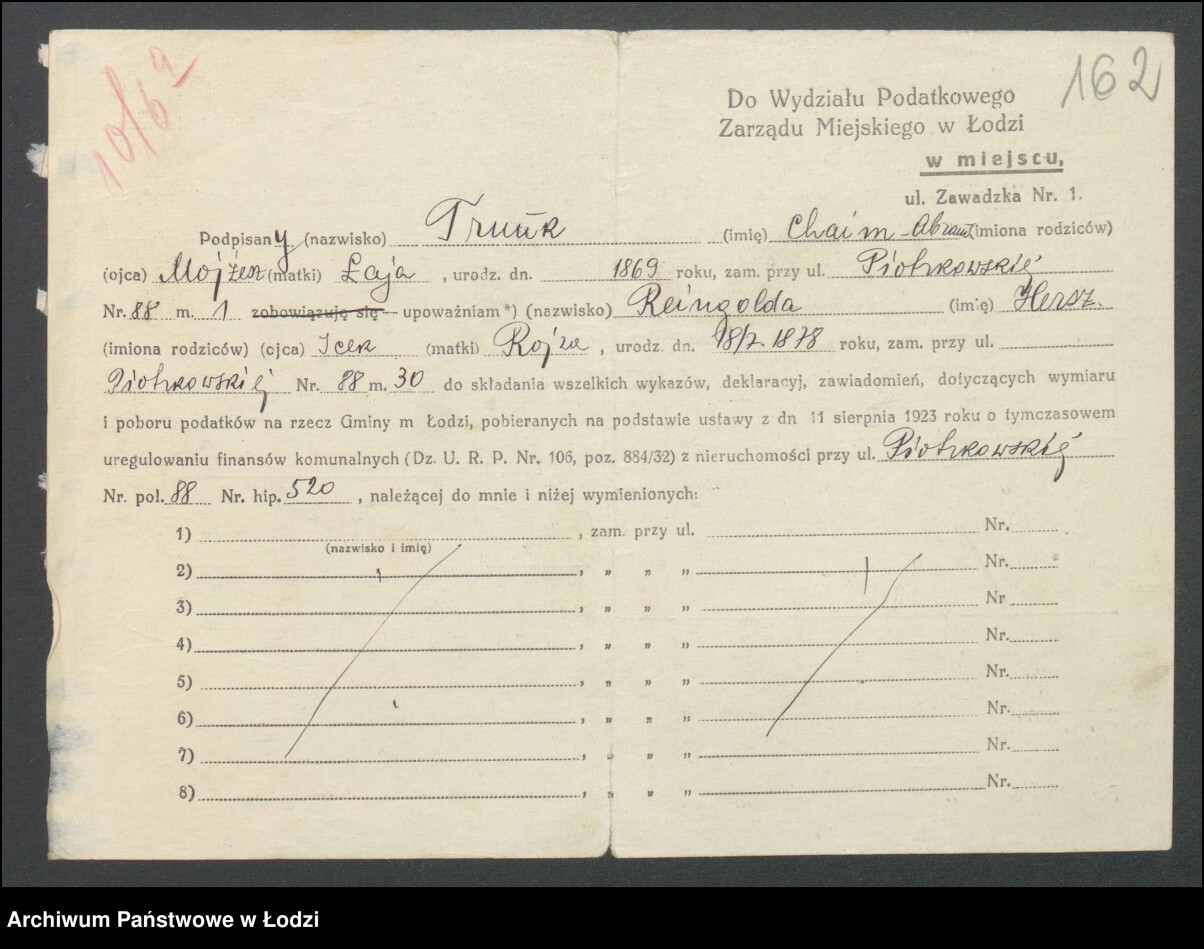 10/6 9
162
Do Wydziału Podatkowego
Zarządu Miejskiego w Łodzi
w miejscu,
ul. Zawadzka Nr. 1.
Podpisany (nazwisko) Trunk (imię) Chaim-Abram (imiona rodziców)
(ojca) Mojżesz (matki) Łaja , urodz. dn. 1869 roku, zam. przy ul. Piotrkowskiej
Nr. 88 m. 1 zobowiązuję się upoważniam *) (nazwisko) Reingolda (imię) Hersz.
(imiona rodziców) (ojca) Icek (matki) Rojza , urodz. dn. 1878 roku, zam. przy ul.
Piotrkowskiej Nr. 88 m. 30 do składania wszelkich wykazów, deklaracyj, zawiadomień, dotyczących wymiaru
i poboru podatków na rzecz Gminy m Łodzi, pobieranych na podstawie ustawy z dn 11 sierpnia 1923 roku o tymczasowem
uregulowaniu finansów komunalnych (Dz. U. R. P. Nr. 106, poz. 884/32) z nieruchomości przy ul. Piotrkowskiej
Nr. pol. 88 Nr. hip. 520 , należącej do mnie i niżej wymienionych:
1) , zam. przy ul. Nr.
(nazwisko i imię)
2) , „ „ „ Nr.
3) , „ „ „ Nr
4) , „ „ „ Nr.
5) , „ „ „ Nr.
6) , „ „ „ Nr.
7) , „ „ „ Nr.
8) , „ „ „ Nr.
Archiwum Państwowe w Łodzi